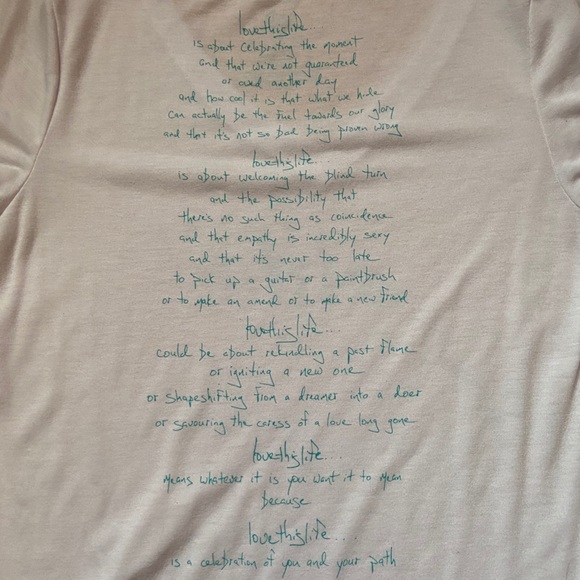 lovethislife....
is about celebrating the moment
and that we're not guaranteed
or owed another day
and how cool it is that what we hide
can actually be the fuel towards our glory
and that it's not so bad being proven wrong
lovethislife...
is about welcoming the blind turn
and the possibility that
there's no such thing as coincidence
and that empathy is incredibly sexy
and that it's never too late
to pick up a guitar or a paintbrush
or to make an amend or to make a new friend
lovethislife....
could be about rekindling a past flame
or igniting a new one
or shapeshifting from a dreamer into a doer
or savouring the caress of a love long gone
lovethislife...
means whatever it is you want it to mean
because
lovethislife....
is a celebration of you and your path